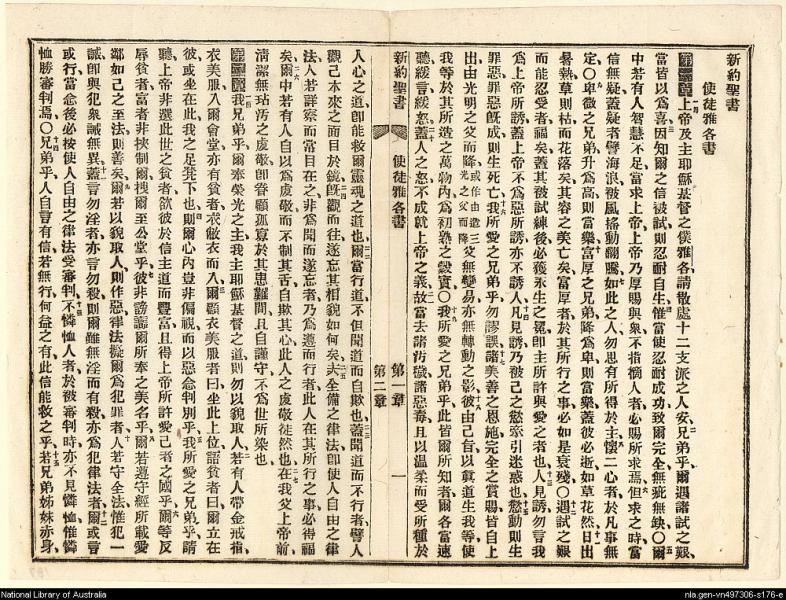 新約聖書
使徒雅各書
第一章 上帝及主耶穌基督之僕雅各請散處十二支派之人安兄弟乎爾遇諸試之艱
當皆以爲喜因知爾之信被試則忍耐自生惟當使忍耐成功致爾完全無玼無缺〇爾
中若有人智慧不足當求上帝上帝乃厚賜與衆不斥人者必賜所求焉但求之時當
信無疑蓋疑者譬海浪被風搖動翻騰如此之人勿思有所得於主懷二心者於凡事無
定〇卑微之兄弟升爲高則當樂富厚之兄弟降爲卑則當樂蓋彼必逝如草花然日出
暑熱草則枯而花落矣其容之美亡矣富厚者於其所行之事必如是衰殘〇遇試之艱
而能忍受者福矣蓋其被試練後必獲永生之冕卽主所許與愛之者也人見誘勿言我
爲上帝所誘蓋上帝不爲惡所誘亦不誘人凡見誘乃被己之慾牽引迷惑也慾動則生
罪惡罪惡旣成則生死亡我所愛之兄弟乎勿謬誤諸美善之恩施完全之賞賜皆自上
出由光明之父而降或作由造光之父而降父無變易亦無轉動之影彼由己旨以眞道生我等使
我等於其所造之萬物內爲初熟之穀實〇我所愛之兄弟乎此皆爾所知者爾各當速
聽緩言緩怒蓋人之怒不成就上帝之義故當去諸汚穢諸惡毒且以溫柔而受所種於
新約聖書 使徒雅各書 第一章 一
第二章
人心之道卽能救爾靈魂之道也爾當行道不但聞道而自欺也蓋聞道而不行者譬人
觀己本來之面目於鏡旣觀而往遂忘其相貌如何矣夫全備之律法卽使人自由之律
法人若詳察而當目在之非爲聞而遂忘者乃爲遵而行者此人在其所行之事必得福
矣爾中若有人自以爲虔敬而不制其舌自欺其心此人之虔敬徒然也在我父上帝前
淸潔無玷汚之虔敬卽眷顧孤寡於其患難間且自謹守不爲世所染也
第二章 我兄弟乎爾奉榮光之主我主耶穌基督之道則勿以貌取人若有人帶金戒指
衣美服入爾會堂亦有貧者衣敝衣而入爾顧衣美服者曰坐此上位語貧者曰爾立在
彼或坐在此我之足凳下也則爾心內豈非偏視而以惡念判别乎我所愛之兄弟乎請
聽上帝非選此世之貧者欲彼於信主道而豐富且得上帝所許愛己者之國乎爾等反
辱貧者富者非挾制爾拽爾至公堂乎彼非謗讟爾所奉之美名乎爾若遵守經所載愛
鄰如己之至法則善矣爾若以貌取人則作惡律法擬爾爲犯罪者人若守全法惟犯一
誡卽與犯衆誡無異蓋言勿淫者亦言勿殺則爾雖無淫而有殺亦爲犯律法者爾或言
或行當念後必按使人自由之律法受審判不憐恤人者於被審判時亦不見憐恤惟憐
恤勝審判焉〇兄弟乎人自言有信若無行何益之有此信能救之乎若兄弟姊妹赤身
National Library of Australia
nla.gen-vn497306-s176-e